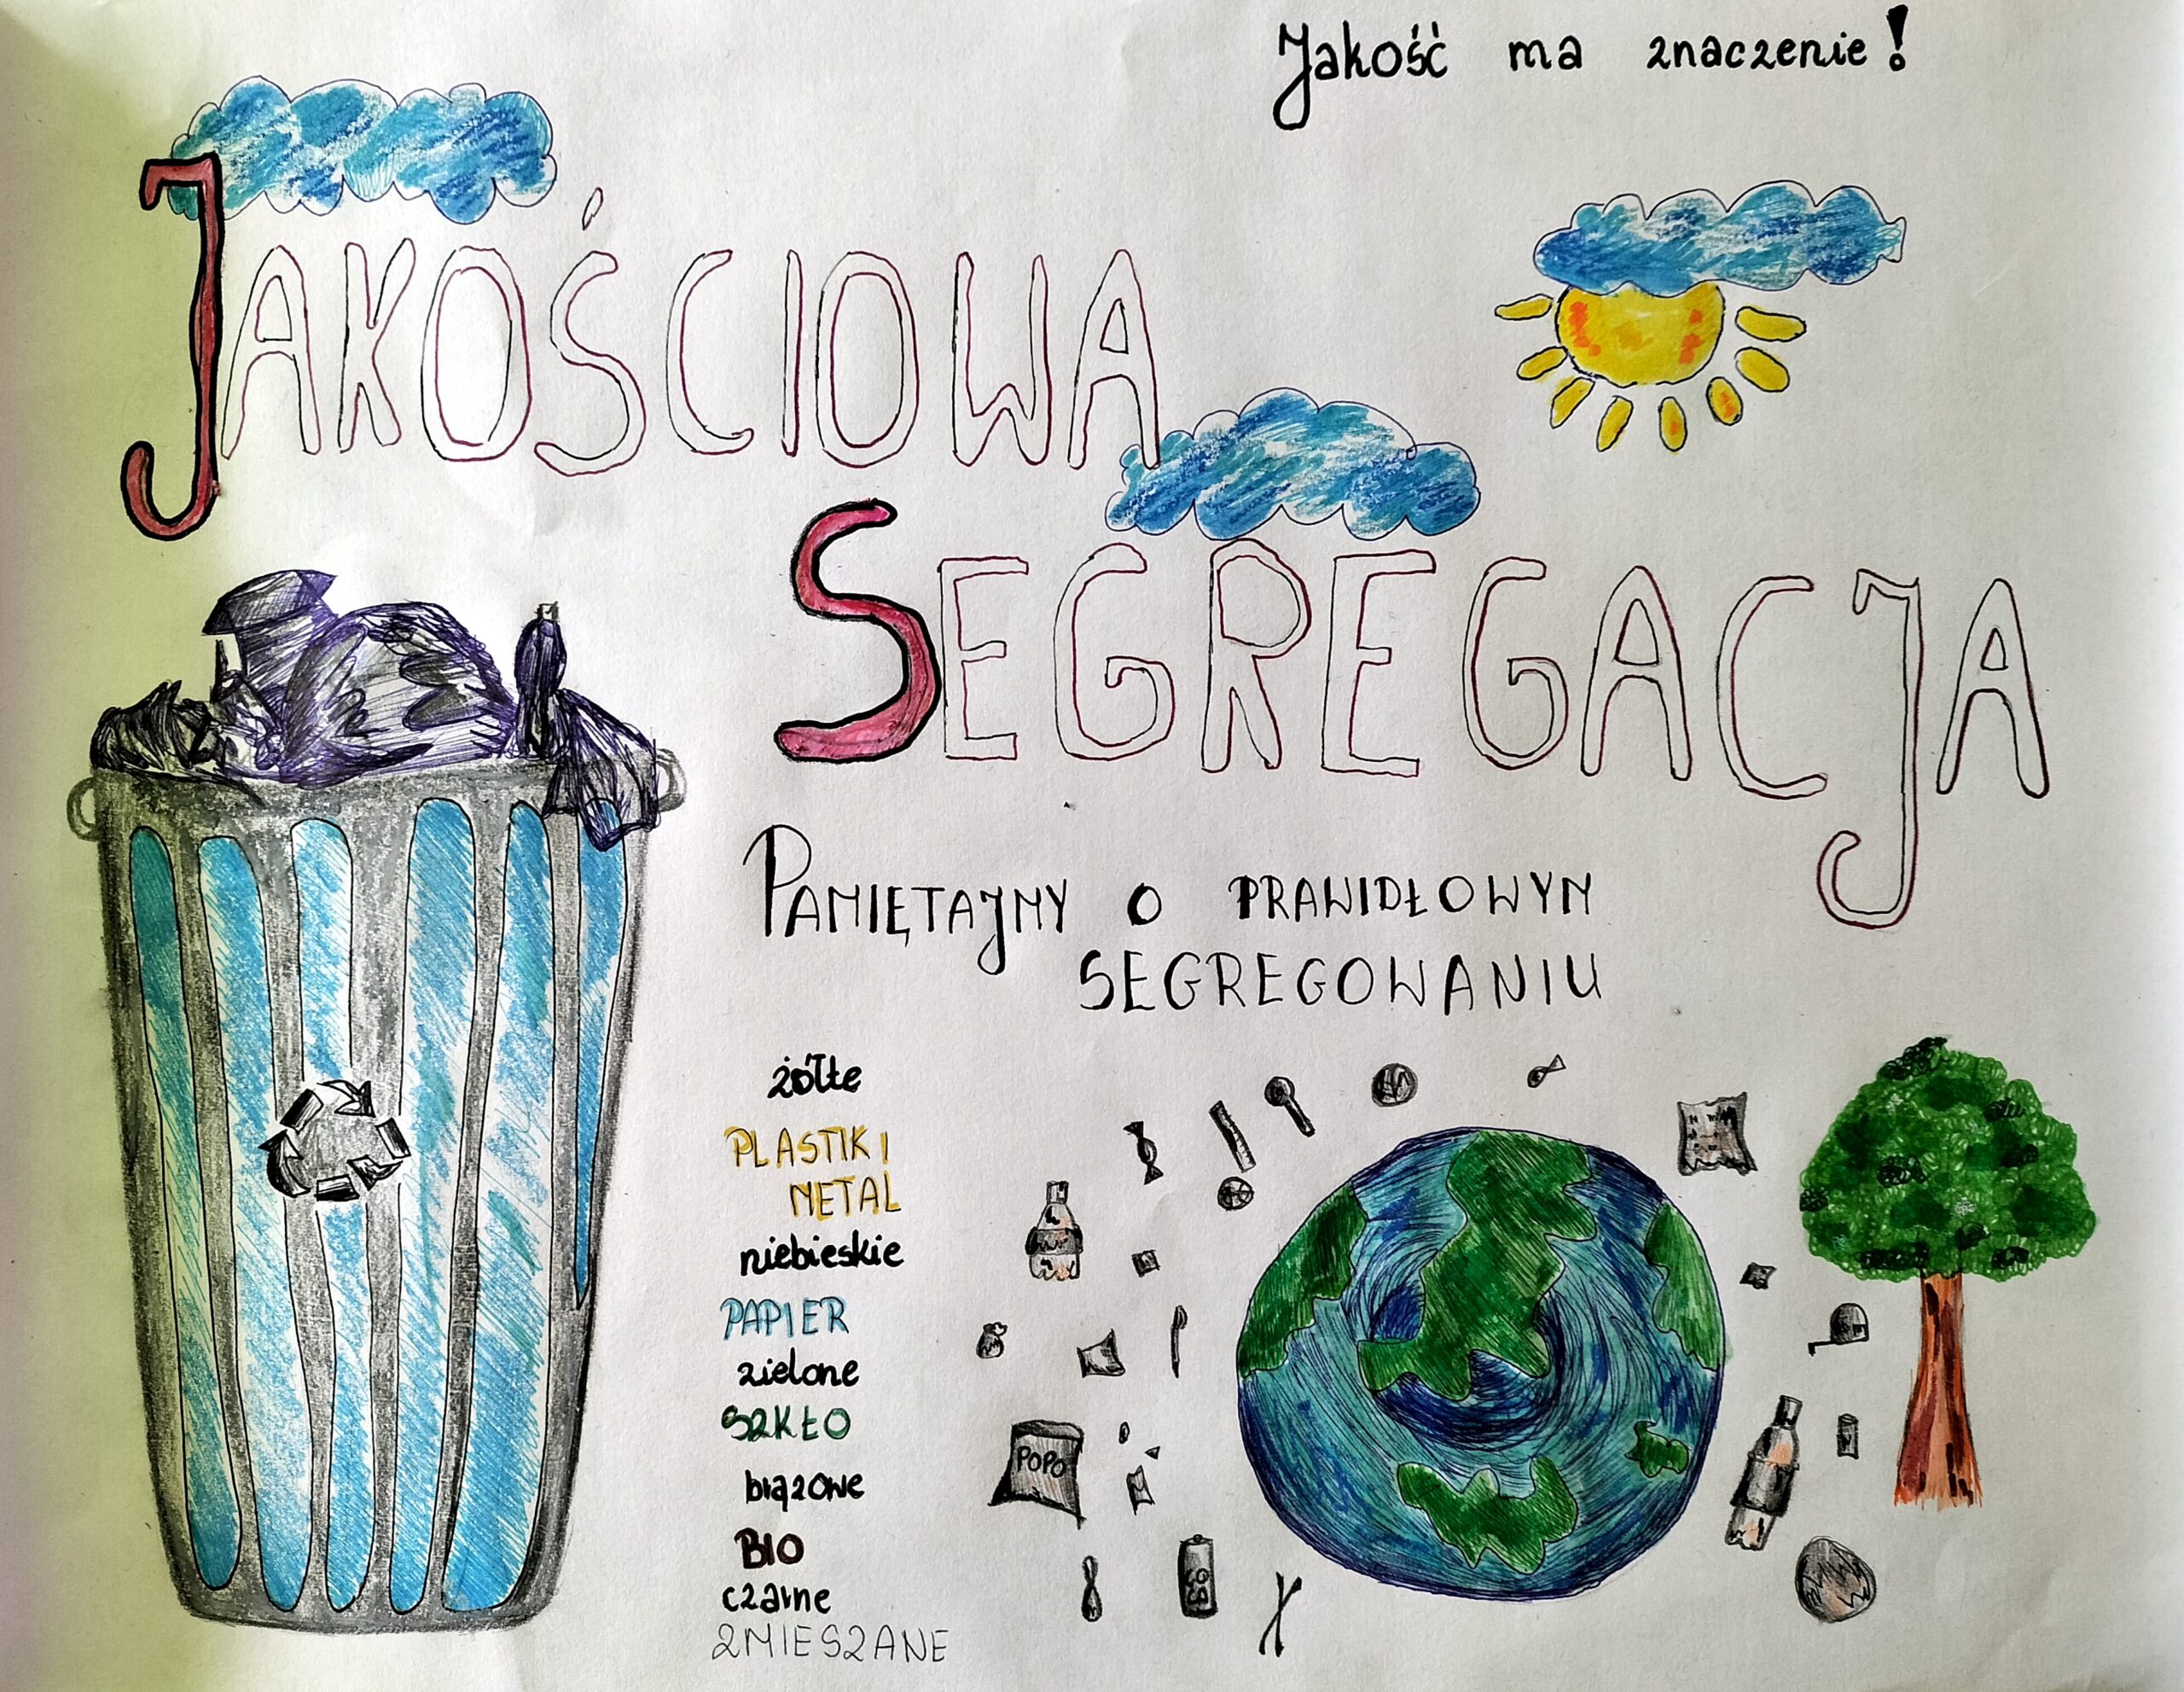 Jakość ma znaczenie!
JAKOŚCIOWA
SEGREGACJA
PAMIĘTAJMY O PRAWIDŁOWYM
SEGREGOWANIU
żółte
PLASTIK I
METAL
niebieskie
PAPIER
zielone
SZKŁO
brązowe
BIO
czarne
ZMIESZANE
POPO